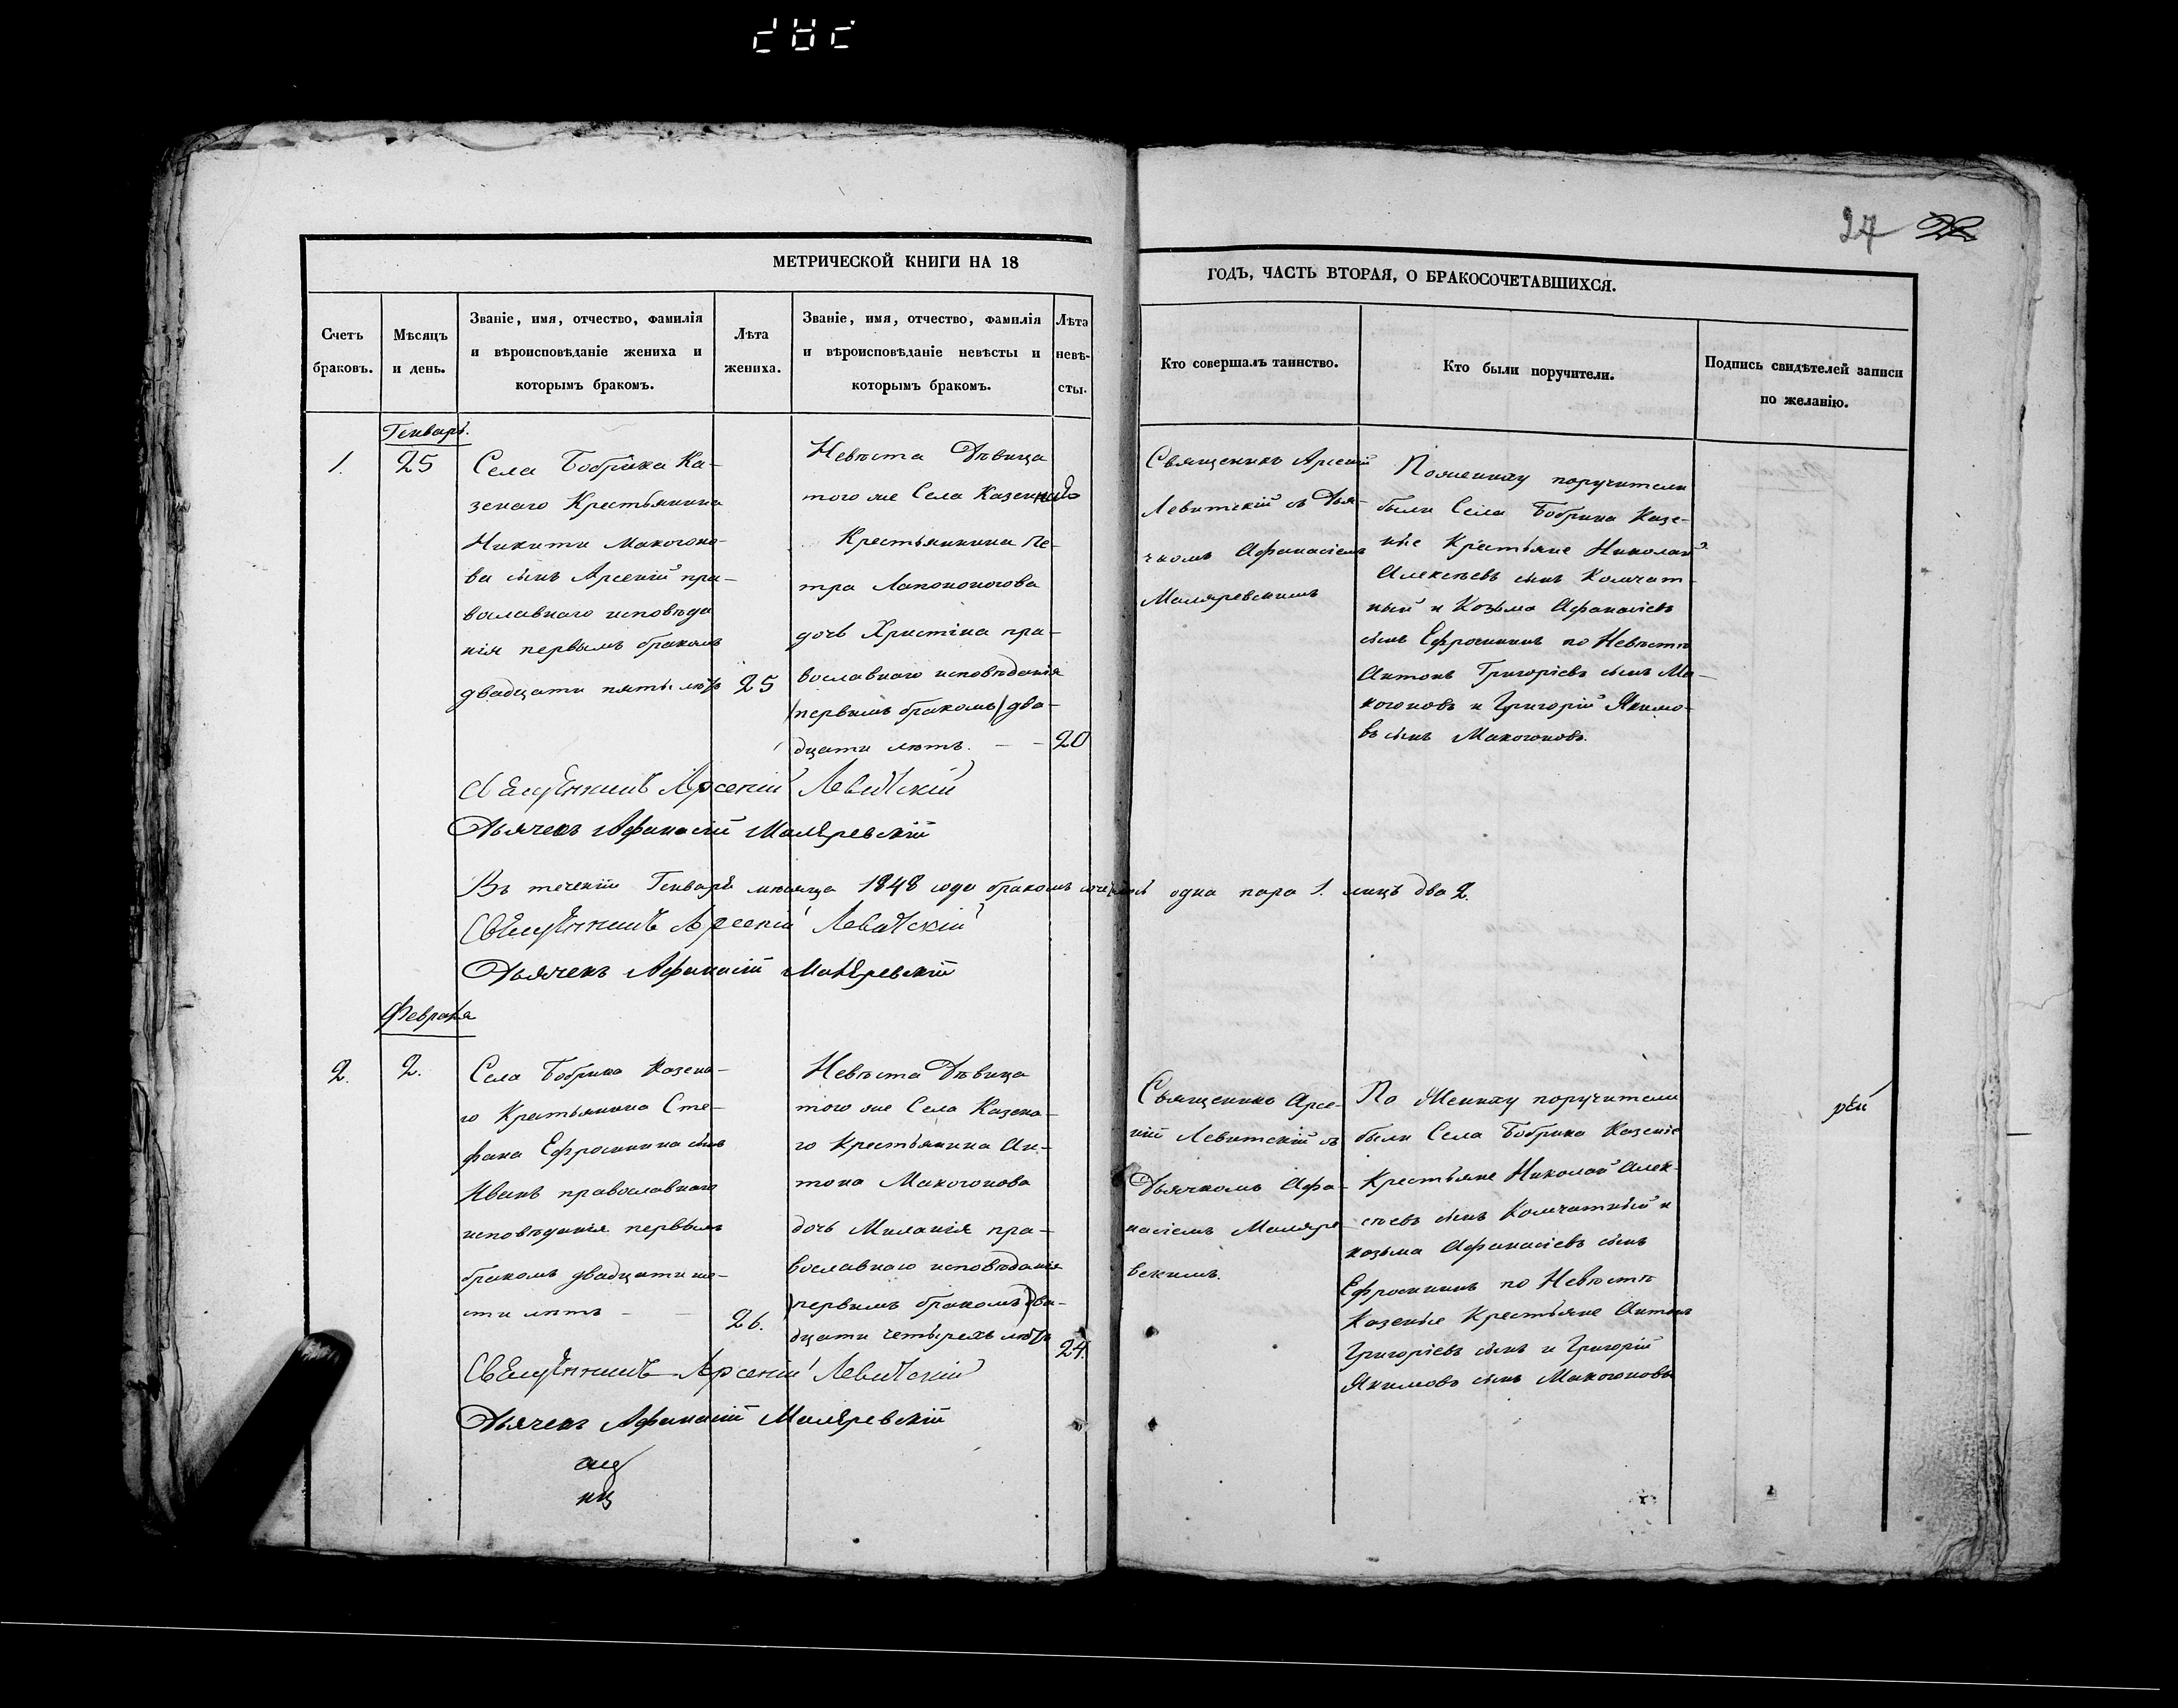 27
МЕТРИЧЕСКОЙ КНИГИ НА 18
ГОДЪ, ЧАСТЬ ВТОРАЯ, О БРАКОСОЧЕТАВШИХСЯ.
Счетъ
браковъ.
Мѣсяцъ
и день.
Званіе, имя, отчество, фамилія
и вѣроисповѣданіе жениха и
которымъ бракомъ.
Лѣта
жениха.
Званіе, имя, отчество, фамилія
и вѣроисповѣданіе невѣсты и
которымъ бракомъ.
Лѣта
невѣ-
сты.
Кто совершалъ таинство.
Кто были поручители.
Подпись свидѣтелей записи
по желанію.
Генварь.
1.
25
Села Бобрика Ка-
зенаго Крестьянина
Никити Макогоно-
ва сынъ Арсеній пра-
вославнаго исповѣда
нія первымъ бракомъ
двадцати пяти лѣтъ
25
Невѣста Дѣвица
того же Села Казеннаго
Крестьянина Пе-
тра Лапоногова
дочь Христіна пра-
вославнаго исповѣданія
первымъ бракомъ два-
дцати лѣтъ. - -
20
Священикъ Арсеній
Левитскій съ Дья-
чкомъ Афанасіемъ
Маляревскимъ
По жениху поручители
были Села Бобрика Казе-
ные Крестьяне Николай
Алексѣевъ сынъ Комчат-
ный и Козьма Афанасіевъ
сынъ Ефросининъ по Невѣстѣ
Антонъ Григоріевъ сынъ Ма-
когоновъ и Григорій Якимо-
въ сынъ Макогоновъ.
Священникъ Арсеній Левитскій
Дьячекъ Афанасій Маляревскій
Въ теченіи Генваря мѣсяца 1848 года бракомъ одна пара 1. лицъ два 2.
Священникъ Арсеній Левитскій
Дьячекъ Афанасій Маляревскій
Февраля
2.
2.
Села Бобрика Казена-
го Крестьянина Сте-
фана Ефросинина сынъ
Иванъ православнаго
исповѣданія первымъ
бракомъ двадцати ше-
сти лѣтъ - -
26.
Невѣста Дѣвица
того же Села Казена-
го Крестьянина Ан-
тона Макогонова
дочь Миланія пра-
вославнаго исповѣданія
первымъ бракомъ два-
дцати четырехъ лѣтъ
24.
Священикъ Арсе-
ній Левитскій съ
Дьячкомъ Афа-
насіемъ Маляре-
вскимъ.
По Жениху поручители
были Села Бобрика Казеніе
Крестьяне Николай Алек-
сѣевъ сынъ Комчатный и
козьма Афанасіевъ сынъ
Ефросининъ по Невѣстѣ
Казеные Крестьяне Антонъ
Григоріевъ сынъ и Григорій
Якимовъ сынъ Макогоновы
рей
Священникъ Арсеній Левитскій
Дьячекъ Афанасій Маляревскій